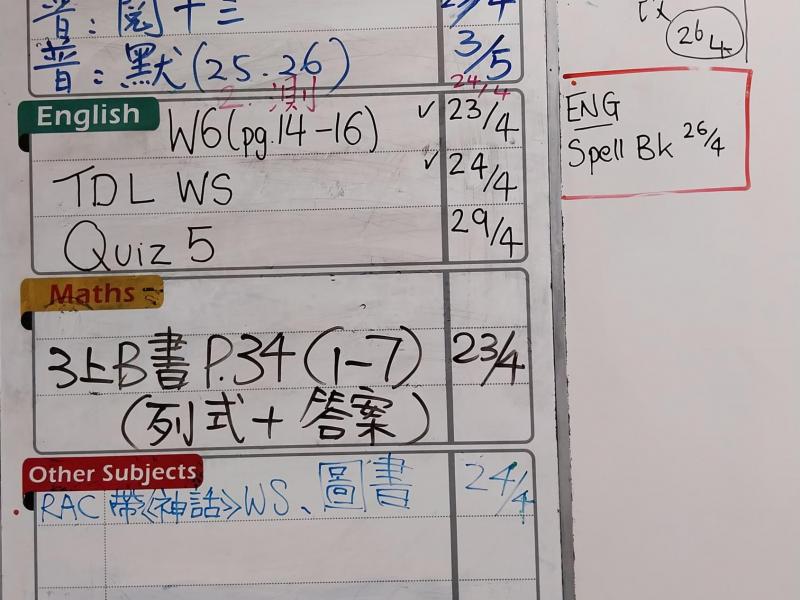 普：閱十三
普：默(25.26) 3/5
2. 測 24/4
English
W6(pg.14-16) ✓ 23/4
TDL WS ✓ 24/4
Quiz 5 29/4
Maths
3上B書 P.34 (1-7) 23/4
(列式+答案)
Other Subjects
RAC 帶《神話》WS、圖書 24/4
26/4
ENG
Spell Bk 26/4